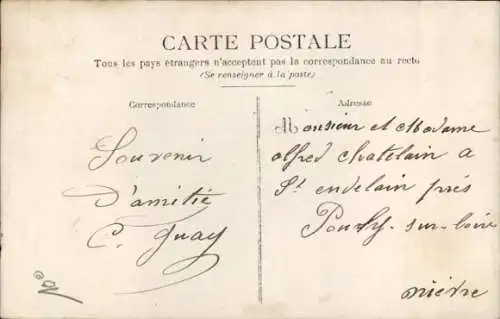 CARTE POSTALE
Tous les pays étrangers n'acceptent pas la correspondance au recto.
(Se renseigner à la poste)
Correspondance
Adresse
Souvenir
D'amitié
C. Guay
Monsieur et Madame
alfred chatelain a
St andelain près
Pouilly-sur-loire
nièvre